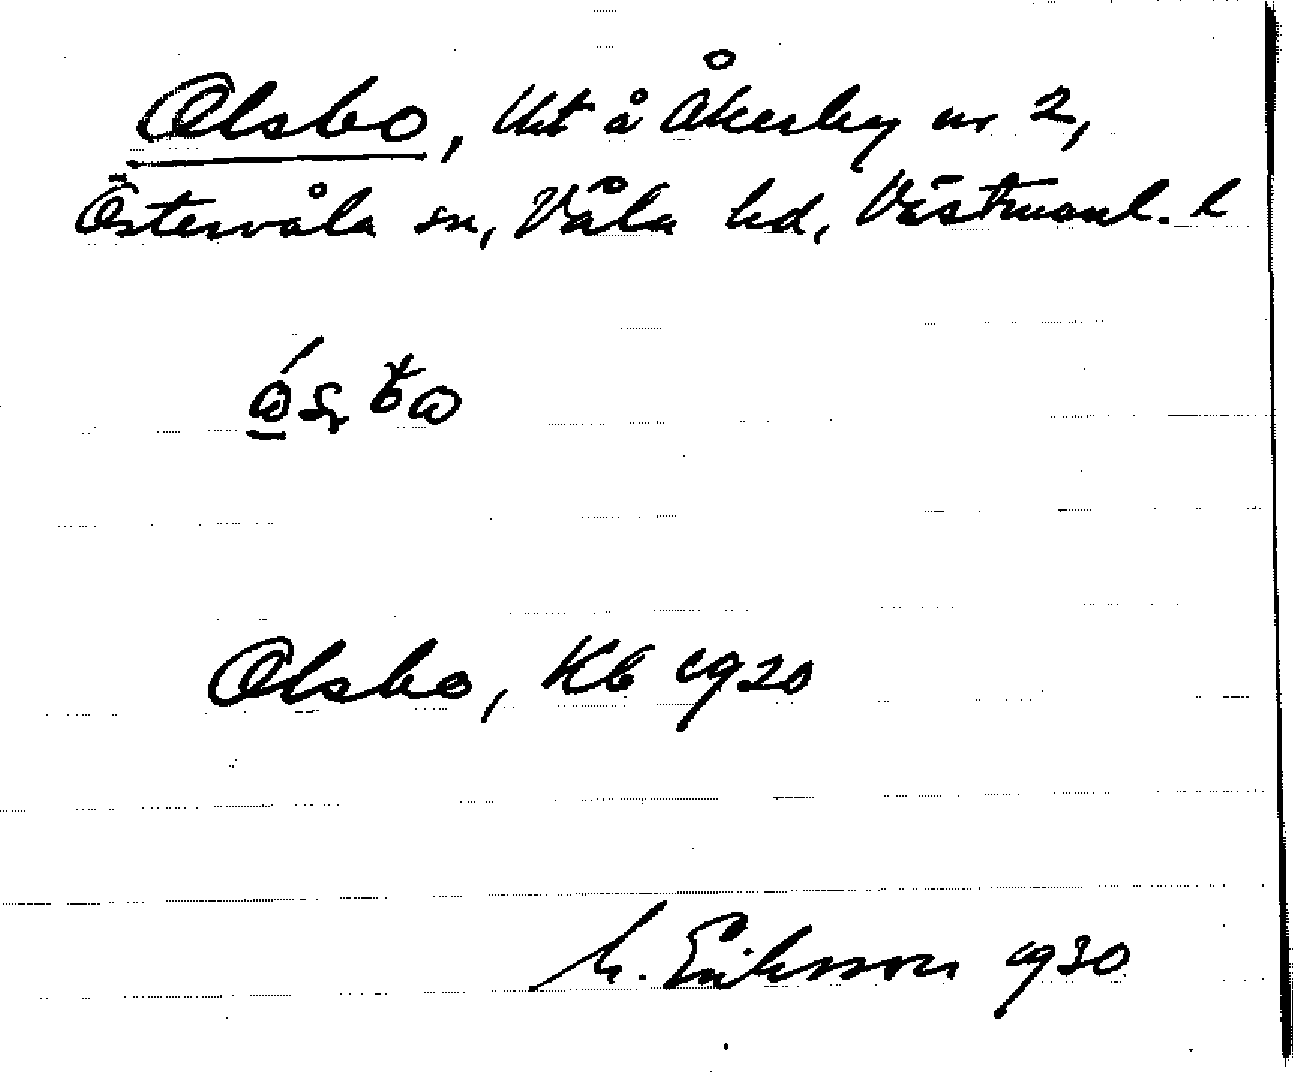 Olsbo, lht å Åkerby nr 2,
Östervåla sn, Våla hd, Västmanl. l
Olsbo, Kb 1920
M. Eriksson 1930